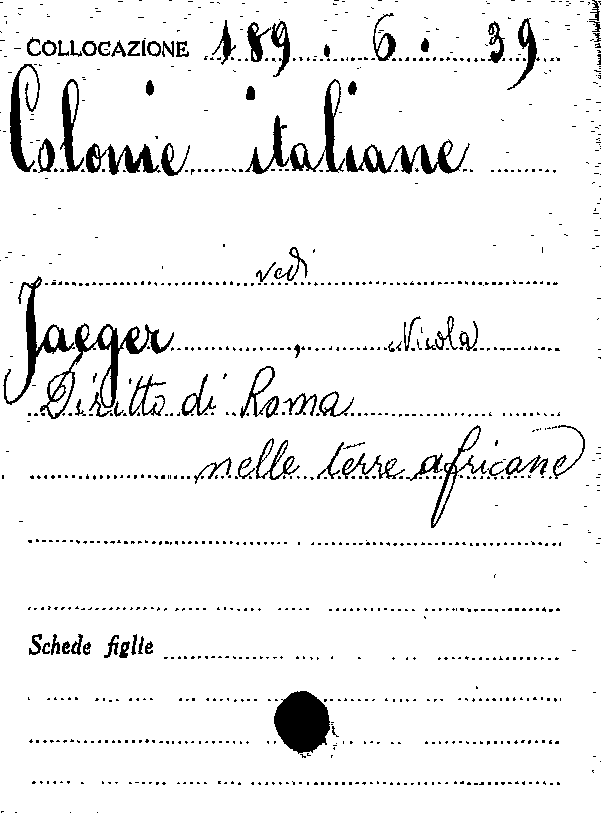 COLLOCAZIONE 189.6.39
Colonie italiane
vedi
Jaeger, Nicola
Diritto di Roma
nelle terre africane
Schede figlie